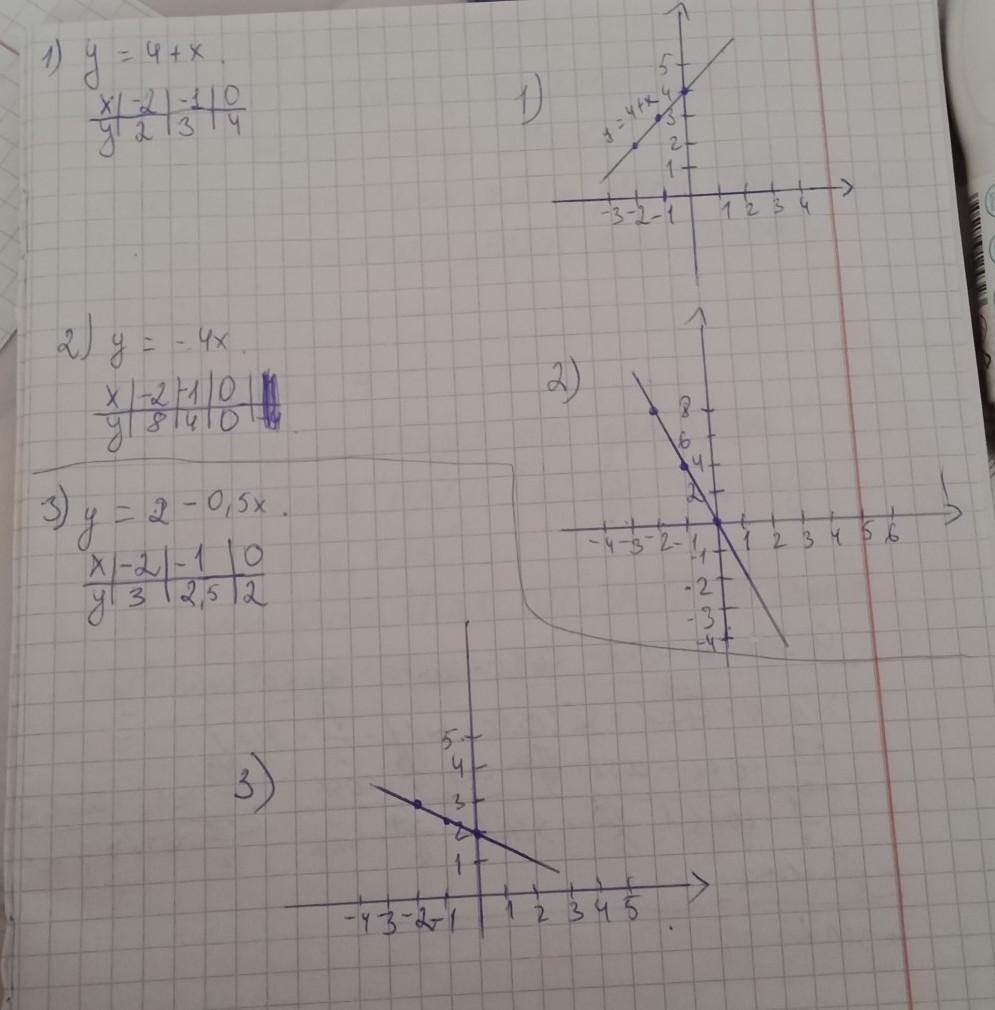 1) y = 4 + x.
x | -2 | -1 | 0
y | 2 | 3 | 4
1)
5
4
3
2
1
y = 4+x
-3 -2 -1 1 2 3 4
2) y = - 4x.
x | -2 | -1 | 0 |
y | 8 | 4 | 0 |
2)
8
6
4
2
-4 -3 -2 -1 1 2 3 4 5 6
-1
-2
-3
-4
3) y = 2 - 0,5x.
x | -2 | -1 | 0
y | 3 | 2,5 | 2
3)
5
4
3
2
1
-4 -3 -2 -1 1 2 3 4 5